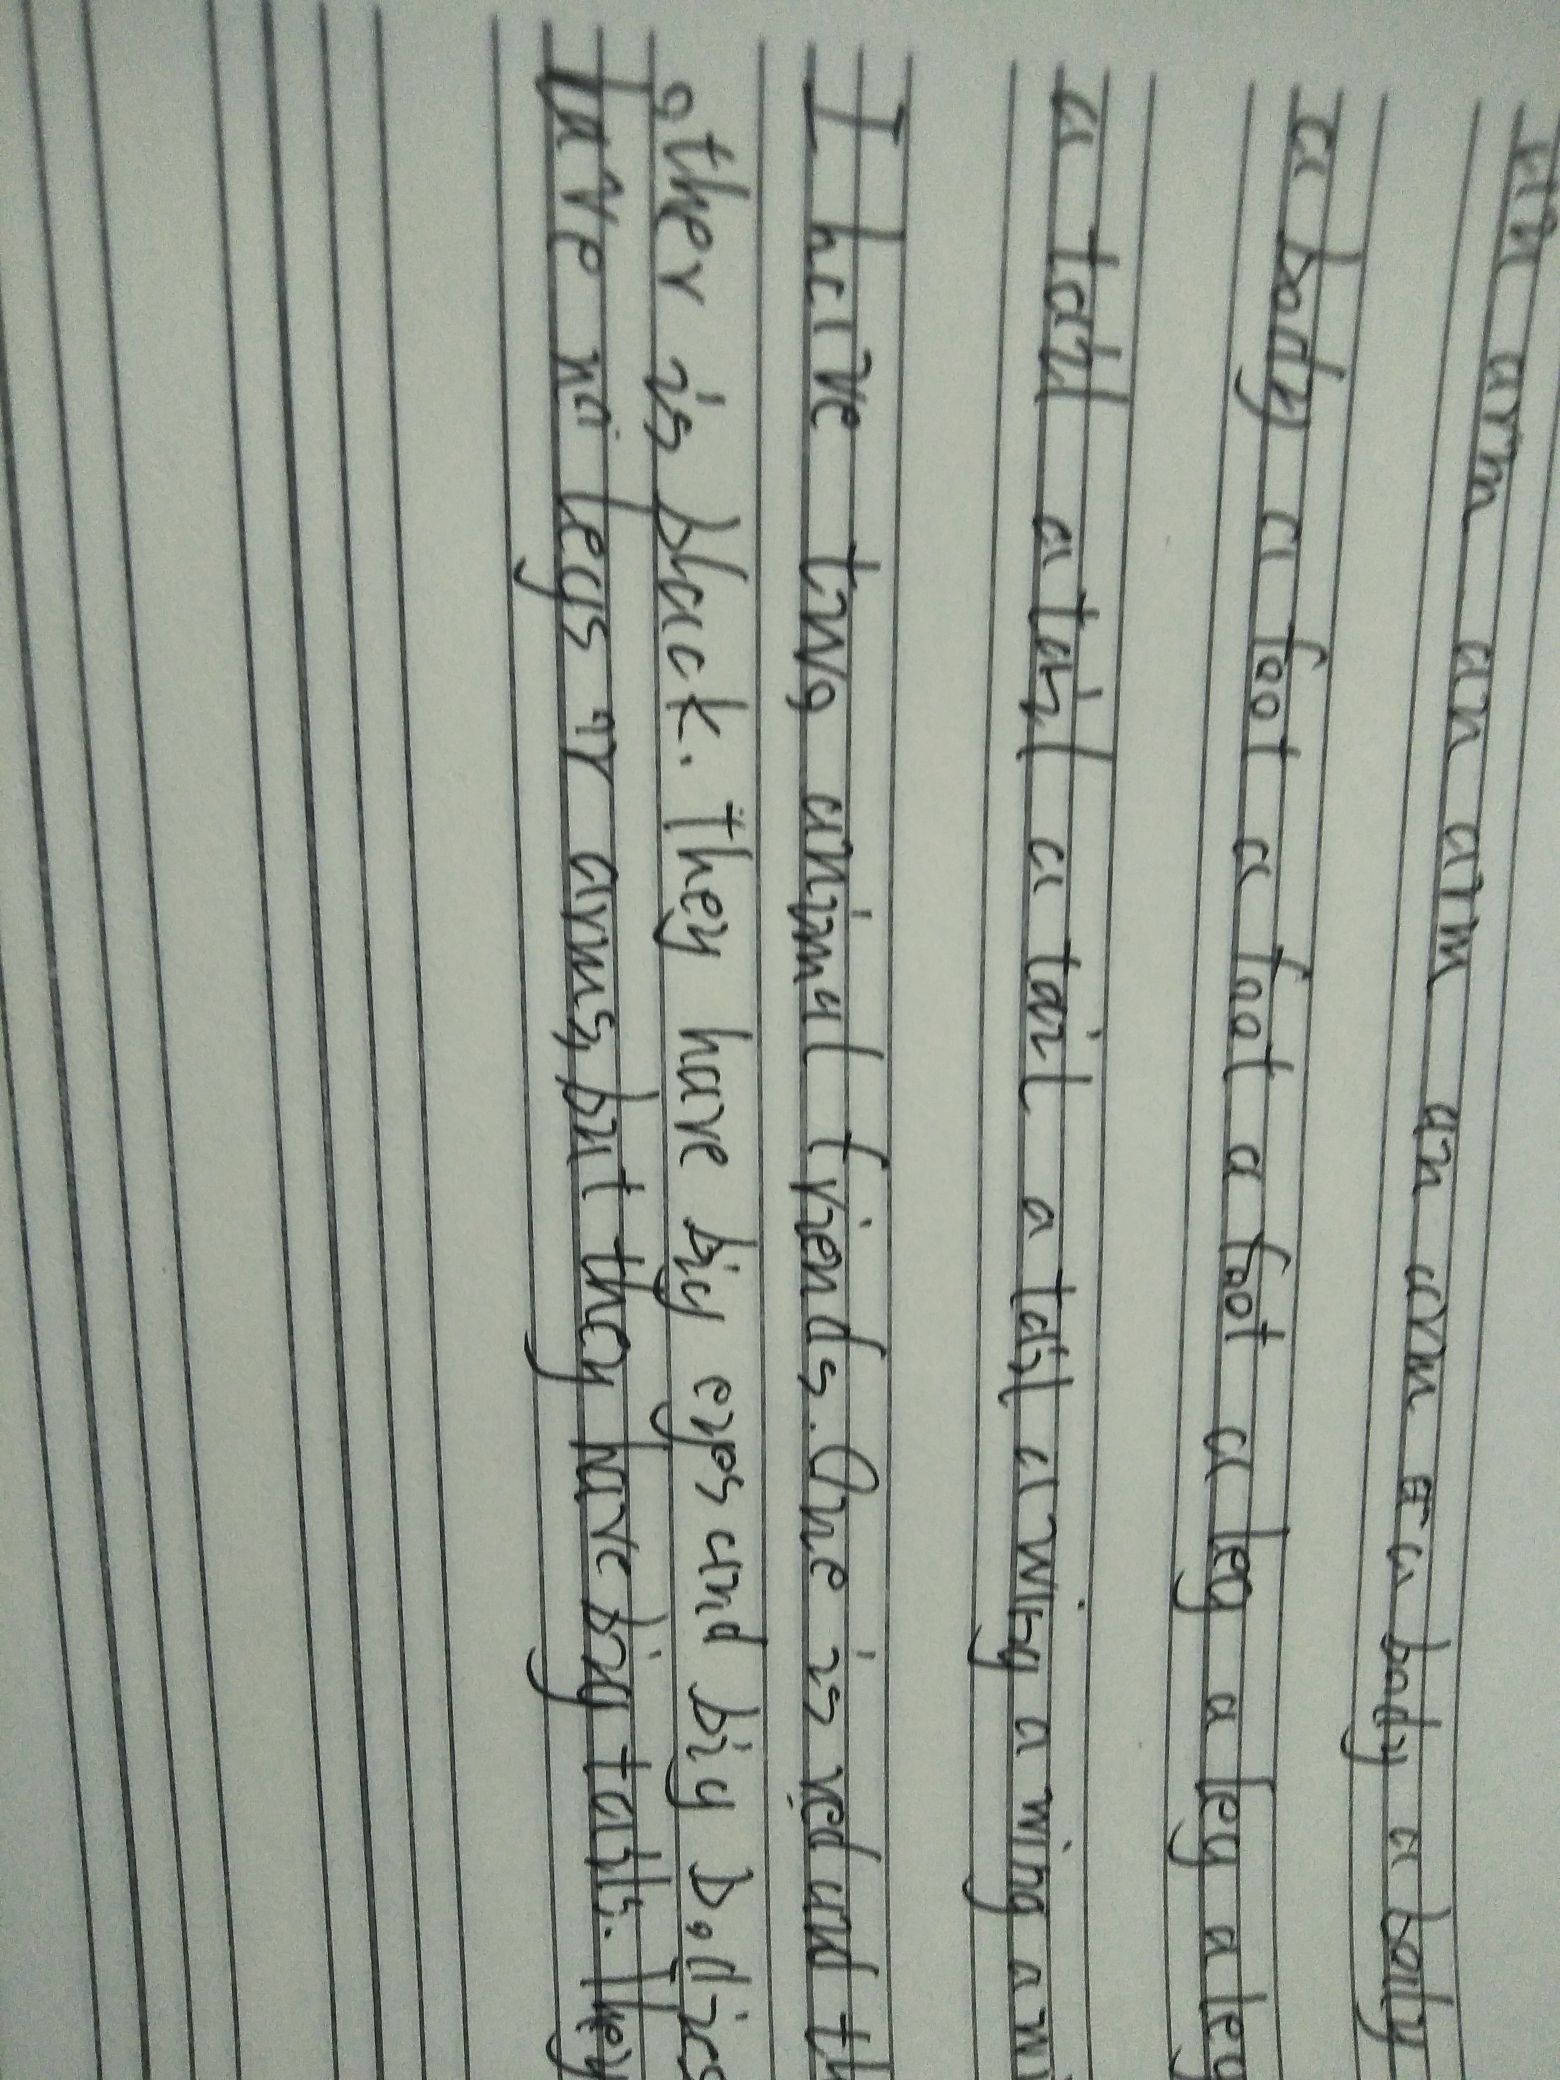 an arm an arm an arm a body a body
a body a foot a foot a foot a leg a leg a leg
a tail a tail a tail a tail a wing a wing a wi
I have two animal friends. One is red and th
other is black. They have big eyes and big bodies
have no legs or arms, but they have big tails. They